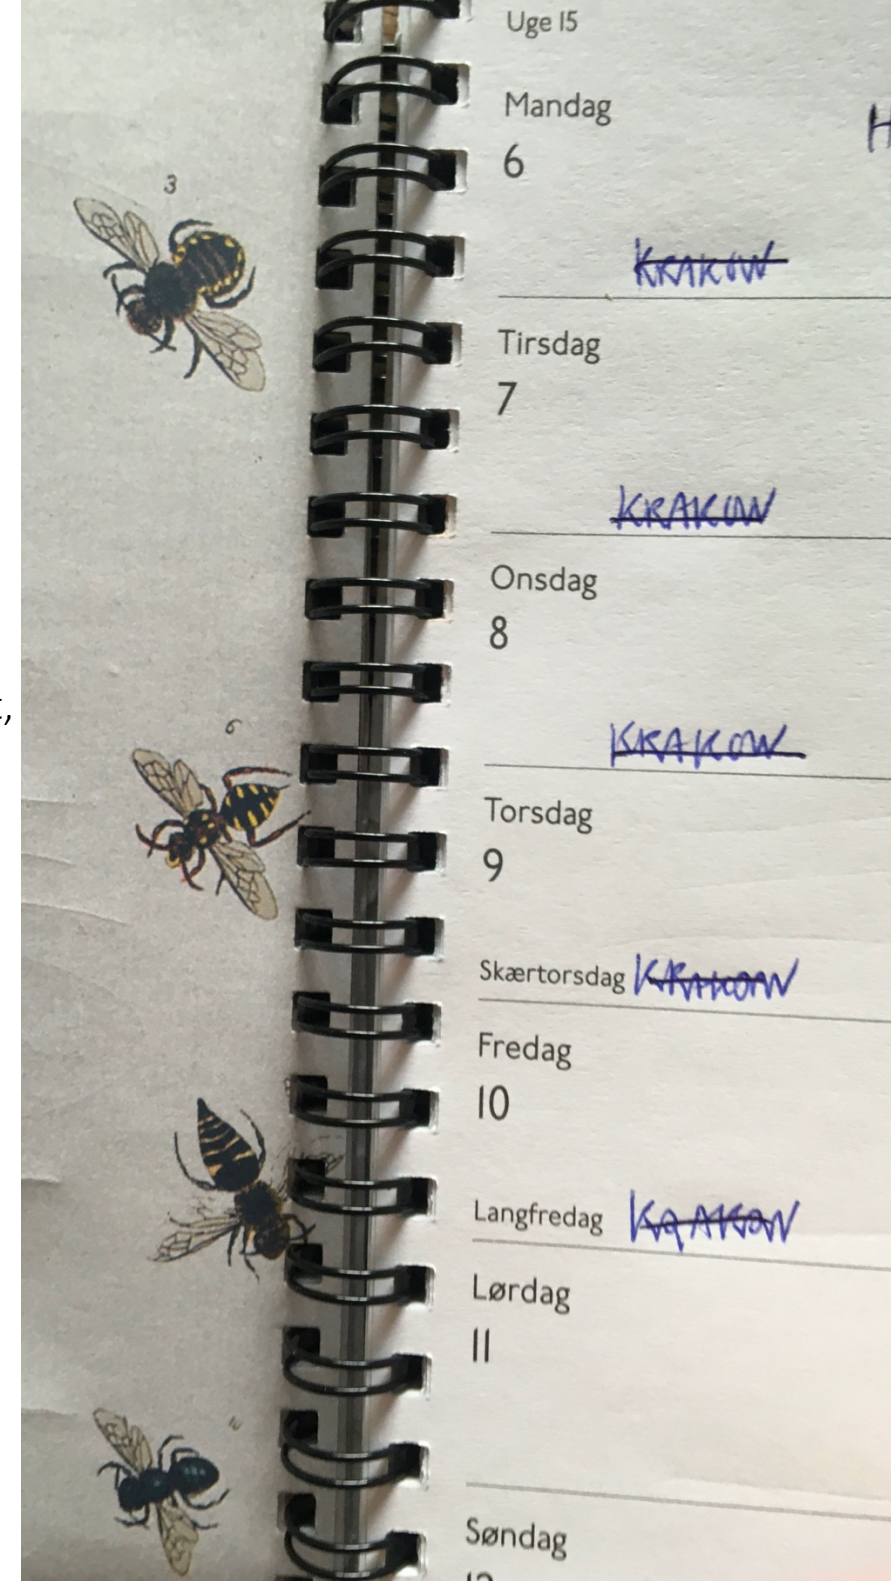 Uge 15
Mandag
6
KRAKOW
Tirsdag
7
KRAKOW
Onsdag
8
KRAKOW
Torsdag
9
Skærtorsdag KRAKOW
Fredag
10
Langfredag KRAKOW
Lørdag
11
Søndag
3
6